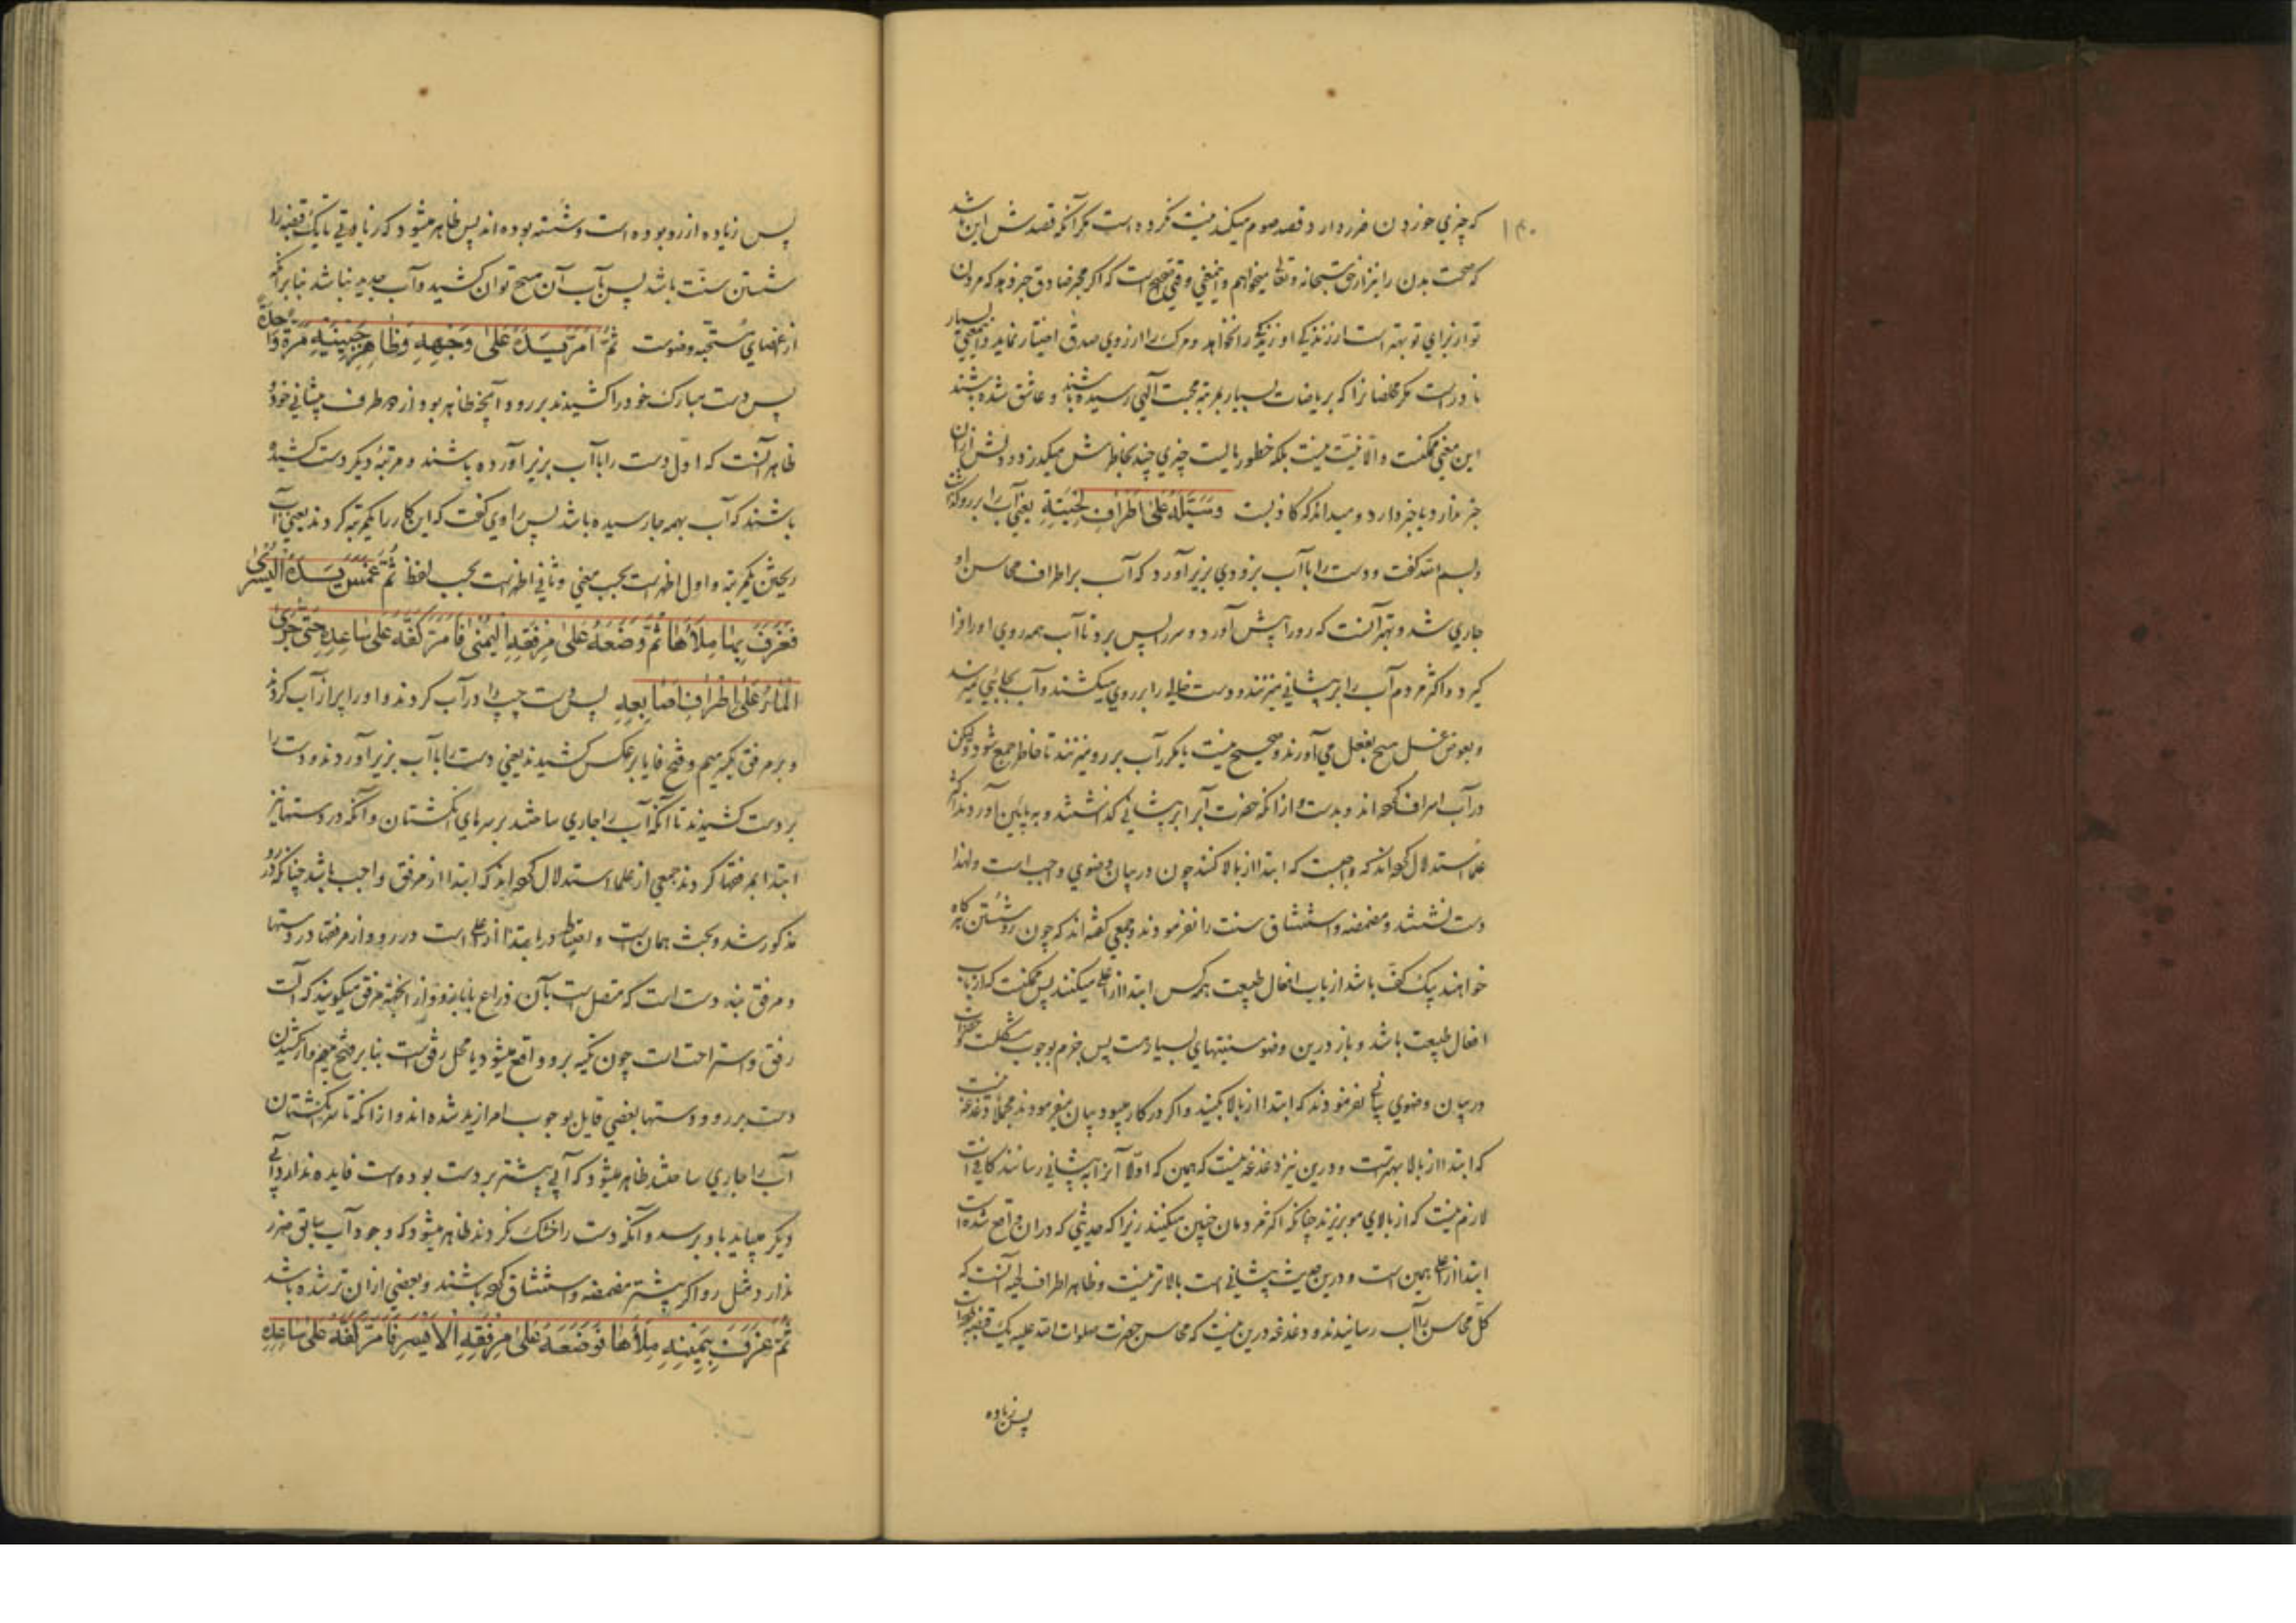 ۱۴۰
که چیزی خوردن ضرر دارد و قصد صوم میکند نیت نکرده است مکر آنکه قصدش این باشد
که صحت بدن را نیز از حق سبحانه و تعالی میخواهم و این معنی وقتی صحیح است که اکر مخبر صادق خبر دهد که مردن
تو از برای تو بهتر است از زندکی او زندکی را نخواهد و مرک را از روی صدق اختیار نماید و این معنی بسیار
نادر است مکر مخلصانرا که بریاضات بسیار بمرتبه محبت الهی رسیده باشند و عاشق شده باشند
این معنی ممکنست و الا نیت نیست بلکه خطور بالیست چیزی چند بخاطرش میکذرد و دلش از آن
خبر ندارد یا خبر دارد و میداند که کاذبست وسَیَّلَهُ عَلیٰ اَطْرافِ لِحْیَتِهِ یعنی آب را بر رو
و بسم الله کفت و دست را با آب بزودی بزیر آورد که آب بر اطراف محاسن او
جاری شد و بهتر آنست که رو را پیش آورد و سر را پس برد تا آب همه روی او را فرا
کیرد و اکثر مردم آب را بر پیشانی میزنند و دست خالی را بر روی میکشند و آب بجائی نمیرسد
و بعوض غسل مسح بفعل می‌آورند و صحیح نیست یا مکرر آب بر رو میزنند تا خاطر جمع شود و لیکن
در آب اسراف کرده‌اند و بد است و از آنکه حضرت آب را بر پیشانی کذاشتند و به پایین آوردند اکثر
علما استدلال کرده‌اند که واجبست که ابتدا از بالا کنند چون در بیان وضوی واجب است و لهذا
دست نشستند و مضمضه و استنشاق سنت را نفرمودند و جمعی کفته‌اند که چون رو شستن کاه
خواهند بیک کف باشد از باب افعال طبیعت هر کس ابتدا از اعلی میکنند پس ممکنست که از باب
افعال طبیعت باشد و باز درین وضو سنتهای بسیار هست پس جزم بوجوب مشکلست و حضرات
در بیان وضوی بیانی نفرمودند که ابتدا از بالا بکنید و اکر در کار میبود بیان میفرمودند مجملا دغدغه نیست
که ابتدا از بالا بهتر است و درین نیز دغدغه نیست که همین که اولا آب را به پیشانی رسانند کافی است
لازم نیست که از بالای مو بریزند چنانکه اکثر مردمان چنین میکنند زیرا که حدیثی که در آن واقع شده است
ابتدا از اعلی همین است و درین حدیث پیشانی است بالاتر نیست و ظاهر اطراف لحیه آنست که
کل محاسن را آب رسانیدند و دغدغه درین نیست که محاسن حضرت صلوات الله علیه یک قبضه
پس زیاده
پس زیاده از رو بوده است و شسته بوده‌اند پس ظاهر میشود که زیادتی تا یک قبضه را
شستن سنت باشد پس بآب آن مسح توان کشید و آب جدید نباشد بنا بر آنکه
از اعضای مستحبه وضوست ثُمَّ اَمَرَّ یَدَهُ عَلیٰ وَجْهِهِ وَظاهِرِ جَبِینَیْهِ مَرَّةً واحِدَةً
پس دست مبارک خود را کشیدند بر رو و آنچه ظاهر بود از هر طرف پیشانی خود و
ظاهر آنست که اول دست را با آب بزیر آورده باشند و مرتبه دیکر دست کشیده
باشند که آب بهمه جا رسیده باشد پس راوی کفت که این کار را یکمرتبه کردند یعنی آب
ریختن یکمرتبه و اول اظهر است بحسب معنی و ثانی اظهر است بحسب لفظ ثُمَّ غَمَسَ یَدَهُ الیُسْریٰ
فَغَرَفَ بِها مِلْأَها ثُمَّ وَضَعَهُ عَلیٰ مِرْفَقِهِ الیُمْنیٰ فَاَمَرَّ کَفَّهُ عَلیٰ ساعِدِهِ حَتّیٰ جَرَی
الماءُ عَلیٰ اَطْرافِ اَصابِعِهِ پس دست چپ را در آب کردند و او را پر از آب کردند
و بر مرفق بکسر میم و فتح فا یا بر عکس کشیدند یعنی دست را با آب بزیر آوردند و دست را
بر دست کشیدند تا آنکه آب را جاری ساختند بر سرهای انکشتان و آنکه در دستها نیز
ابتدا بمرفقها کردند جمعی از علما استدلال کرده‌اند که ابتدا از مرفق واجب باشد چنانکه در رو
مذکور شد و بحث همان است و احتیاط در ابتدا از اعلی است در رو و از مرفقها در دستها
و مرفق بند دست است که متصل است بآن ذراع ببازو و از این جهة مرفق میکویند که آلت
رفق و استراحت است چون تکیه برو واقع میشود یا محل رفق است بنا بر فتح میم و از کشیدن
دست بر رو و دستها بعضی قایل بوجوب امرار ید شده‌اند و از آنکه تا سر انکشتان
آب را جاری ساختند ظاهر میشود که آبی بیشتر بر دست بوده است فایده ندارد و آبی
دیکر میباید باو برسد و آنکه دست را خشک نکردند ظاهر میشود که وجود آب سابق ضرر
ندارد مثل رو اکر پیشتر مضمضه و استنشاق کرده باشند و بعضی از آن تر شده باشد
ثُمَّ غَرَفَ بِیَمِینِهِ مِلْأَها فَوَضَعَهُ عَلیٰ مِرْفَقِهِ الاَیْسَرِ فَاَمَرَّ کَفَّهُ عَلیٰ ساعِدِهِ